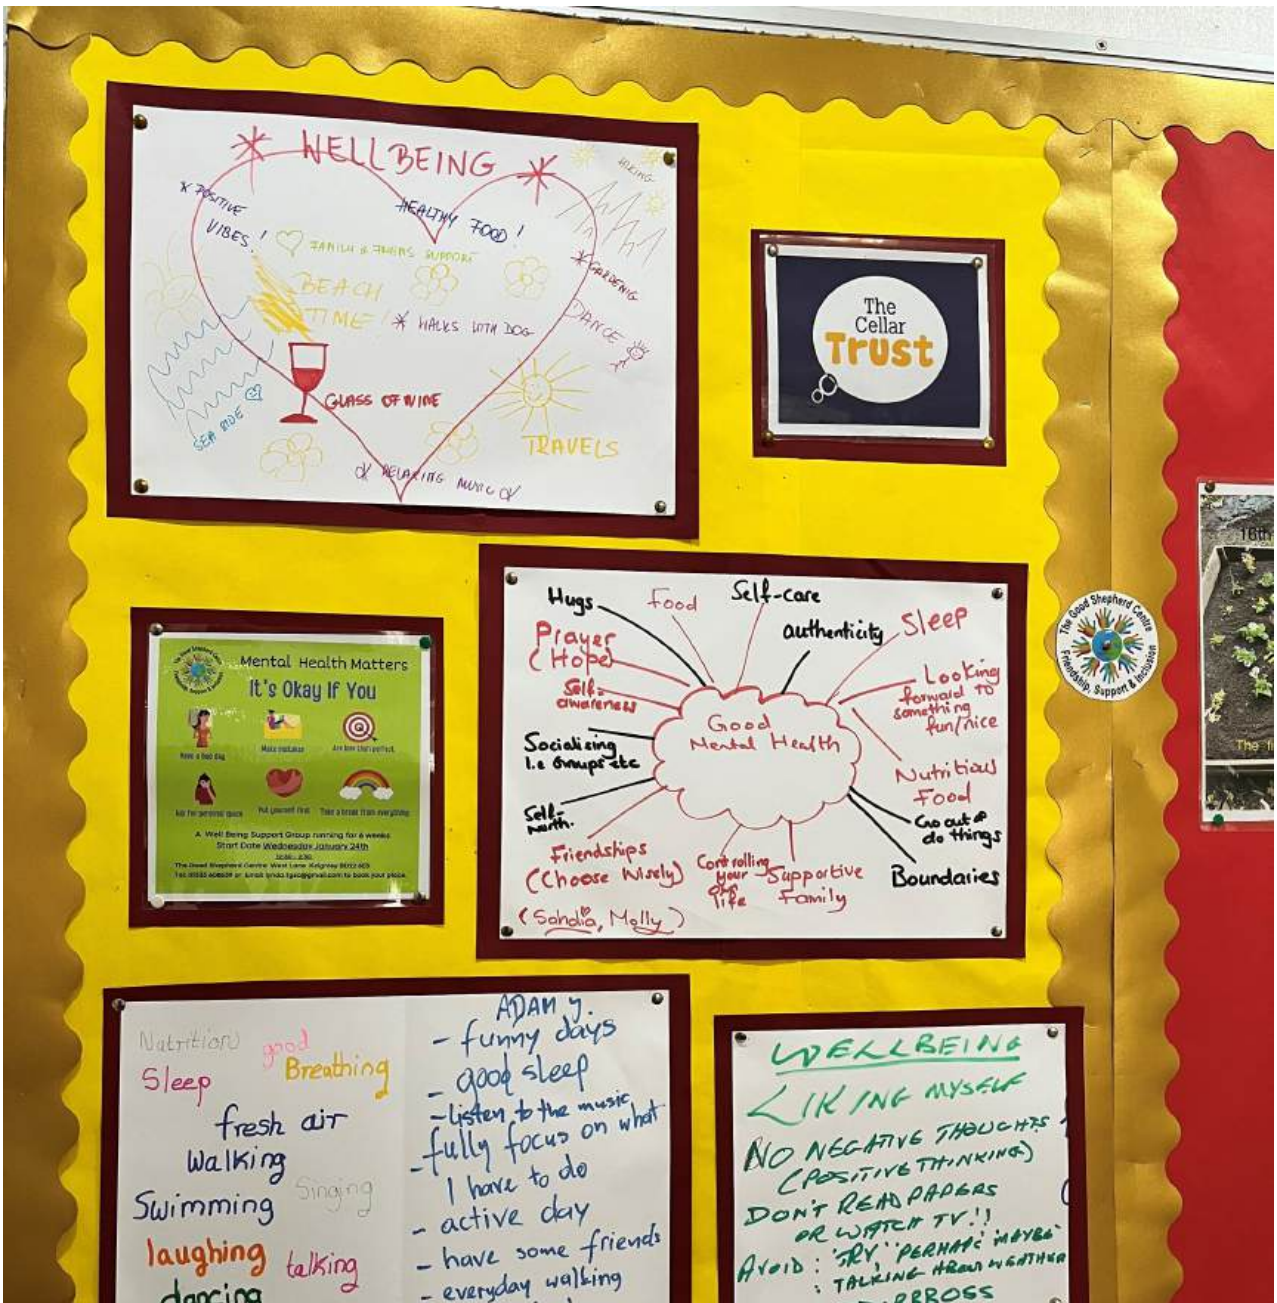 WELLBEING
HIKING
* POSITIVE
VIBES!
HEALTHY FOOD!
FAMILY & FRIENS SUPPORT
* GARDENIG
BEACH
TIME!
* WALKS WITH DOG
DANCE
GLASS OF WINE
SEA SIDE
TRAVELS
RELAXING MUSIC
The
Cellar
Trust
Mental Health Matters
It's Okay If You
Have a bad day
Make mistakes
Are less than perfect
Ask for personal space
Put yourself first
Take a break from everything
A Well Being Support Group running for 6 weeks
Start Date Wednesday January 24th
The Good Shepherd Centre West Lane Keighley
to book your place
Hugs
Food
Self-care
authenticity
Sleep
Prayer
(Hope)
Self-
awareness
Looking
forward to
something
fun/nice
Good
Mental Health
Socialising
I.e Groups etc
Nutritious
Food
Self-
worth.
Go out &
do things
Friendships
(Choose Wisely)
Controlling
your own
life
Supportive
Family
Boundaries
(Sandia, Molly)
The Good Shepherd Centre
Friendship, Support & Inclusion
16th
The fi
Nutrition
good
Sleep
Breathing
fresh air
Walking
Swimming
Singing
laughing
talking
dancing
ADAM y.
- funny days
- good sleep
- listen to the music
- fully focus on what
I have to do
- active day
- have some friends
- everyday walking
WELLBEING
LIKING MYSELF
NO NEGATIVE THOUGHTS
(POSITIVE THINKING)
DON'T READ PAPERS
OR WATCH TV!!
AVOID: "TRY," "PERHAPS" "MAYBE"
: TALKING ABOUT WEATHER